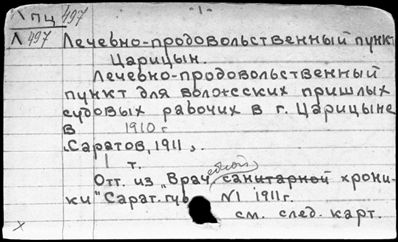 Л ПЦ 497
-1-
Л 497
Лечебно-продовольственный пункт
Царицын.
Лечебно-продовольственный
пункт для волжских пришлых
судовых рабочих в г. Царицыне
в 1910 г
Саратов, 1911,
1 т.
Отт. из "Врачебной санитарной хрони-
ки" Сарат. губ №1 1911 г.
см. след. карт.
x